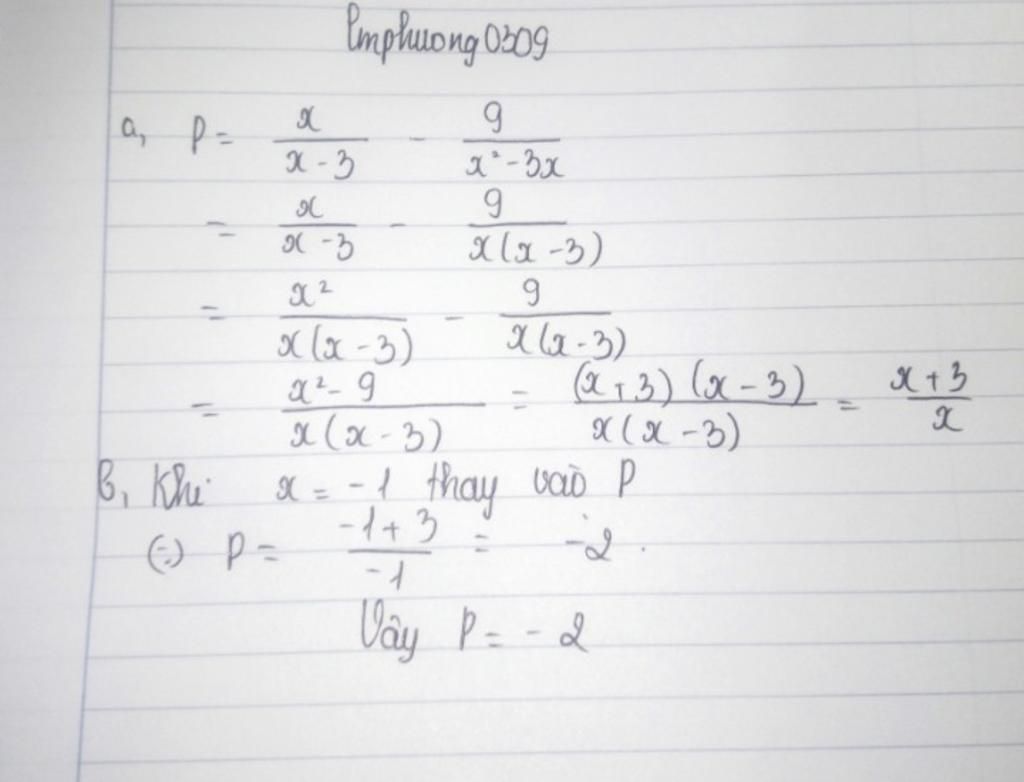 lmphuong0309
a, P = x / x - 3 - 9 / x² - 3x
= x / x - 3 - 9 / x(x - 3)
= x² / x(x - 3) - 9 / x(x - 3)
= x² - 9 / x(x - 3) = (x + 3)(x - 3) / x(x - 3) = x + 3 / x
b, Khi x = -1 thay vào P
(=) P = -1 + 3 / -1 = -2.
Vậy P = -2